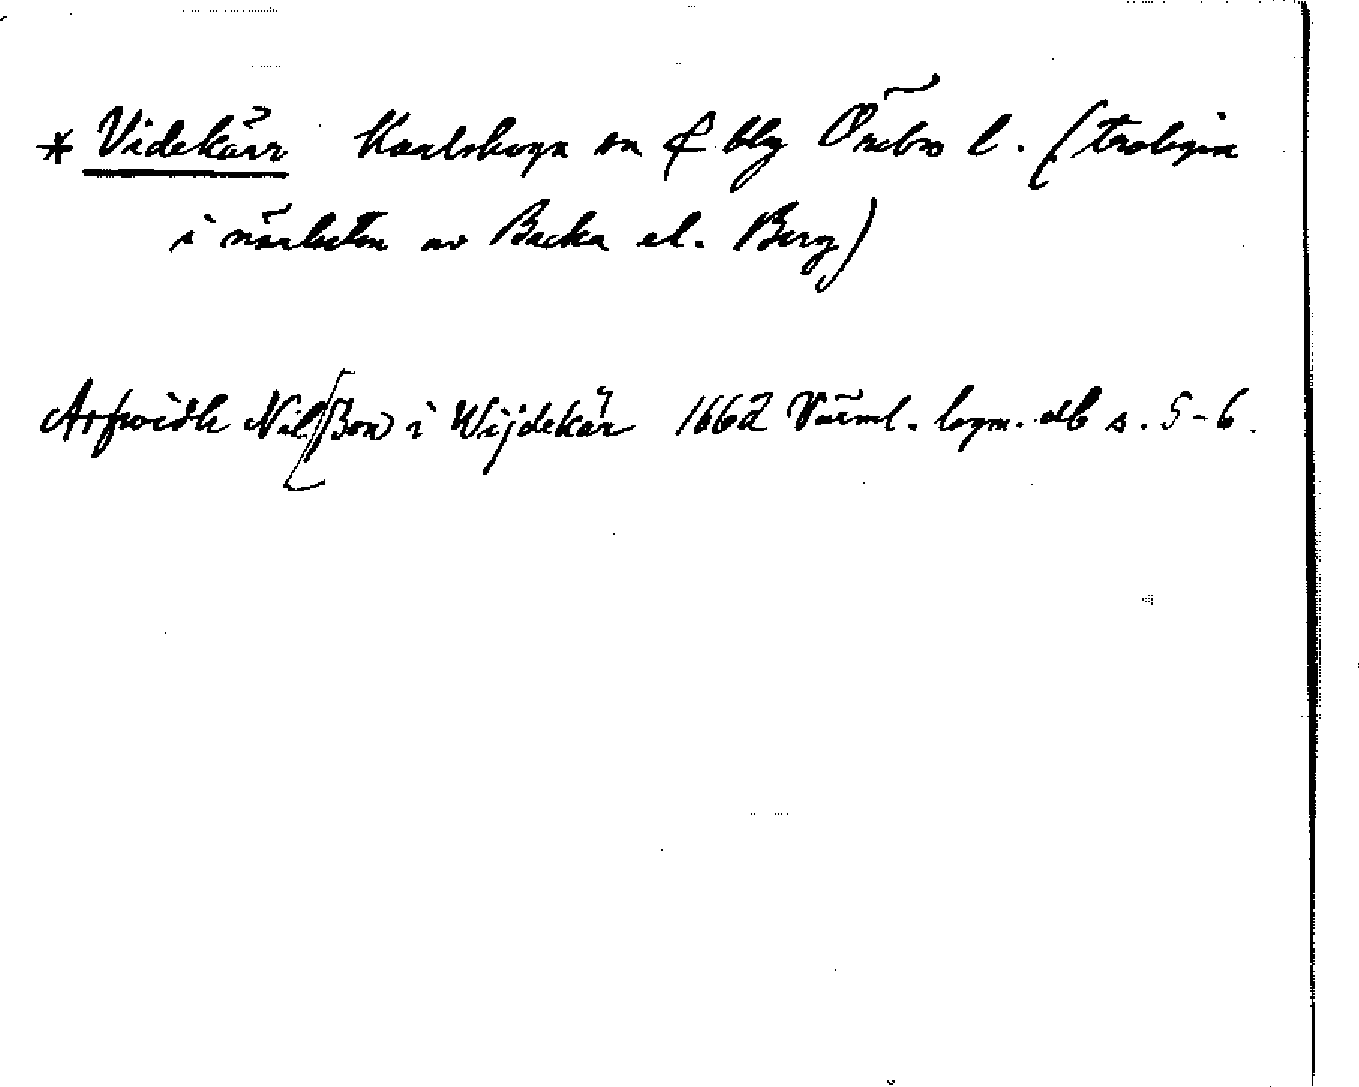 * Videkärr Karlskoga sn & blg Örebro l. (troligen
i närheten av Backa el. Berg)
Arfwidh Nilßon i Wijdekär 1662 Värml. lagm. db s. 5-6.